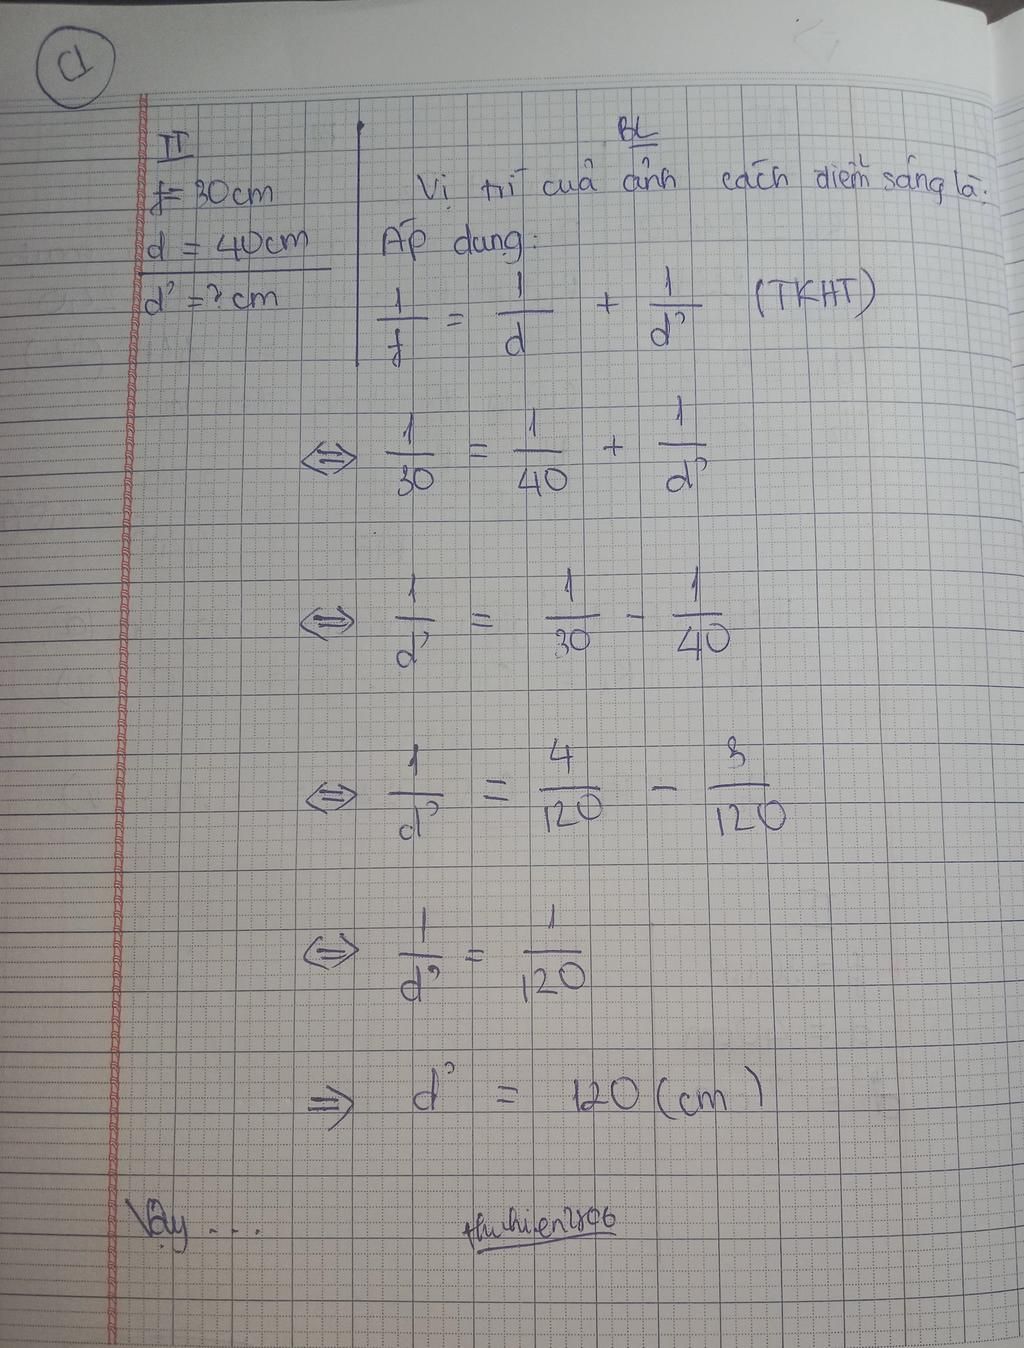 a
TT
f = 30cm
d = 40cm
d' = ? cm
BL
Vị trí cuả ảnh cách điểm sáng là:
Áp dụng:
1/f = 1/d + 1/d' (TKHT)
⇔ 1/30 = 1/40 + 1/d'
⇔ 1/d' = 1/30 - 1/40
⇔ 1/d' = 4/120 - 3/120
⇔ 1/d' = 1/120
⇒ d' = 120 (cm)
Vậy ....